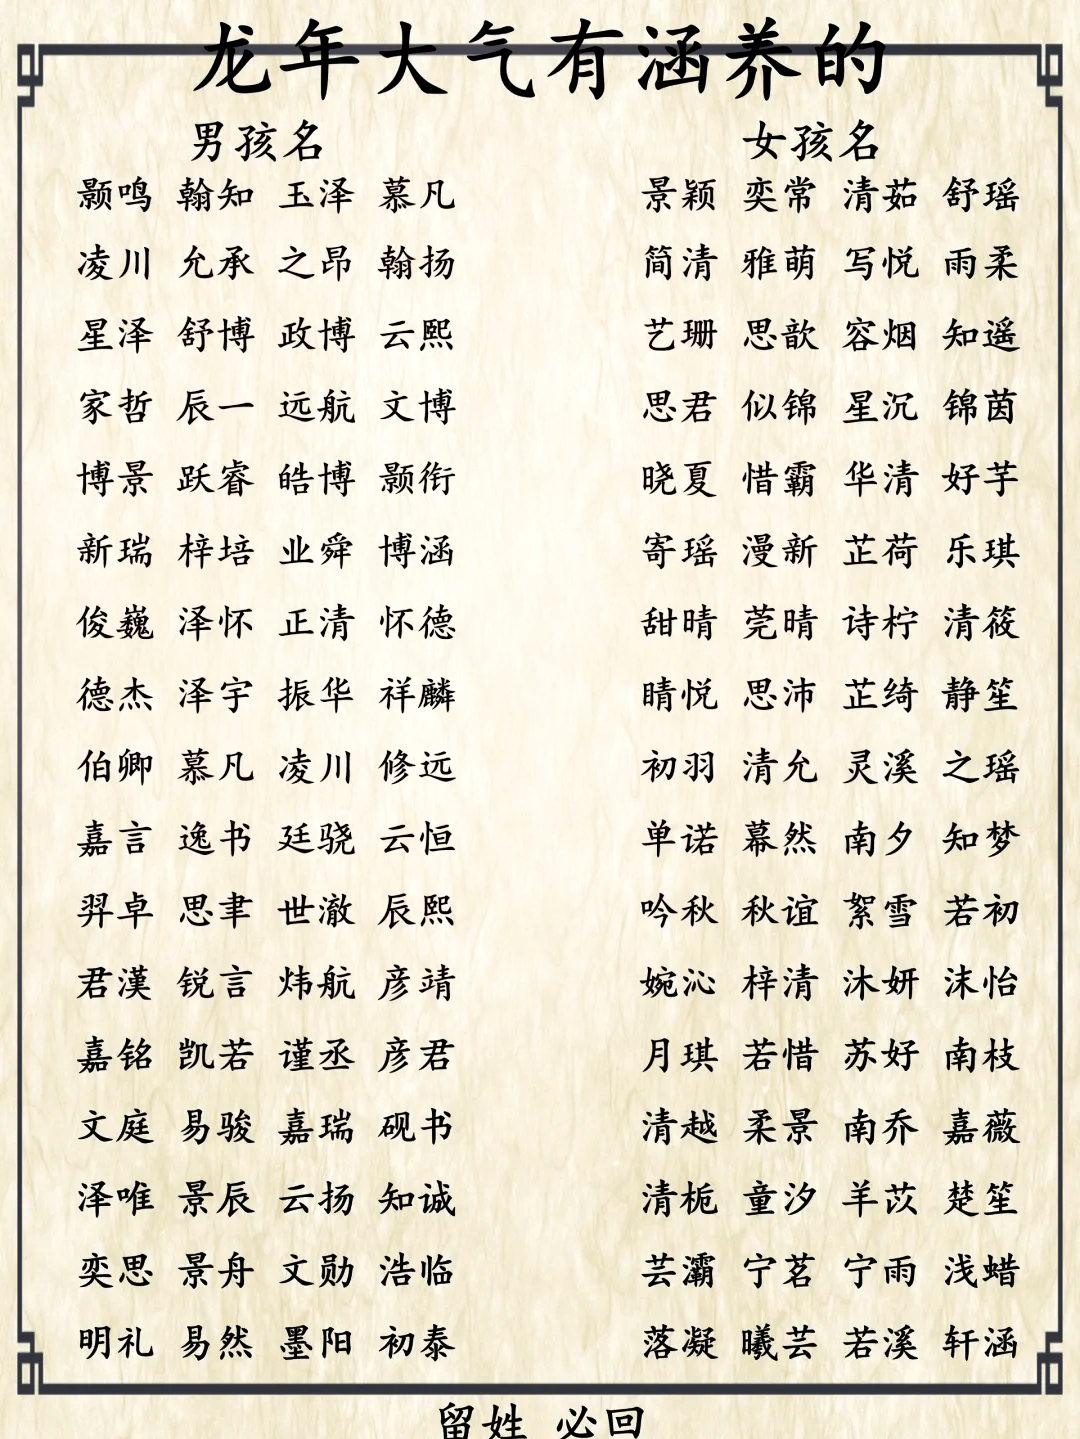 龙年大气有涵养的
男孩名 女孩名
颢鸣 翰知 玉泽 慕凡 景颖 奕常 清茹 舒瑶
凌川 允承 之昂 翰扬 简清 雅萌 写悦 雨柔
星泽 舒博 政博 云熙 艺珊 思歆 容烟 知遥
家哲 辰一 远航 文博 思君 似锦 星沉 锦茵
博景 跃睿 皓博 颢衔 晓夏 惜霸 华清 好芋
新瑞 梓培 业舜 博涵 寄瑶 漫新 芷荷 乐琪
俊巍 泽怀 正清 怀德 甜晴 莞晴 诗柠 清筱
德杰 泽宇 振华 祥麟 晴悦 思沛 芷绮 静笙
伯卿 慕凡 凌川 修远 初羽 清允 灵溪 之瑶
嘉言 逸书 廷骁 云恒 单诺 幕然 南夕 知梦
羿卓 思聿 世澈 辰熙 吟秋 秋谊 絮雪 若初
君漢 锐言 炜航 彦靖 婉沁 梓清 沐妍 沫怡
嘉铭 凯若 谨丞 彦君 月琪 若惜 苏好 南枝
文庭 易骏 嘉瑞 砚书 清越 柔景 南乔 嘉薇
泽唯 景辰 云扬 知诚 清栀 童汐 羊苡 楚笙
奕思 景舟 文勋 浩临 芸灞 宁茗 宁雨 浅蜡
明礼 易然 墨阳 初泰 落凝 曦芸 若溪 轩涵
留姓 必回